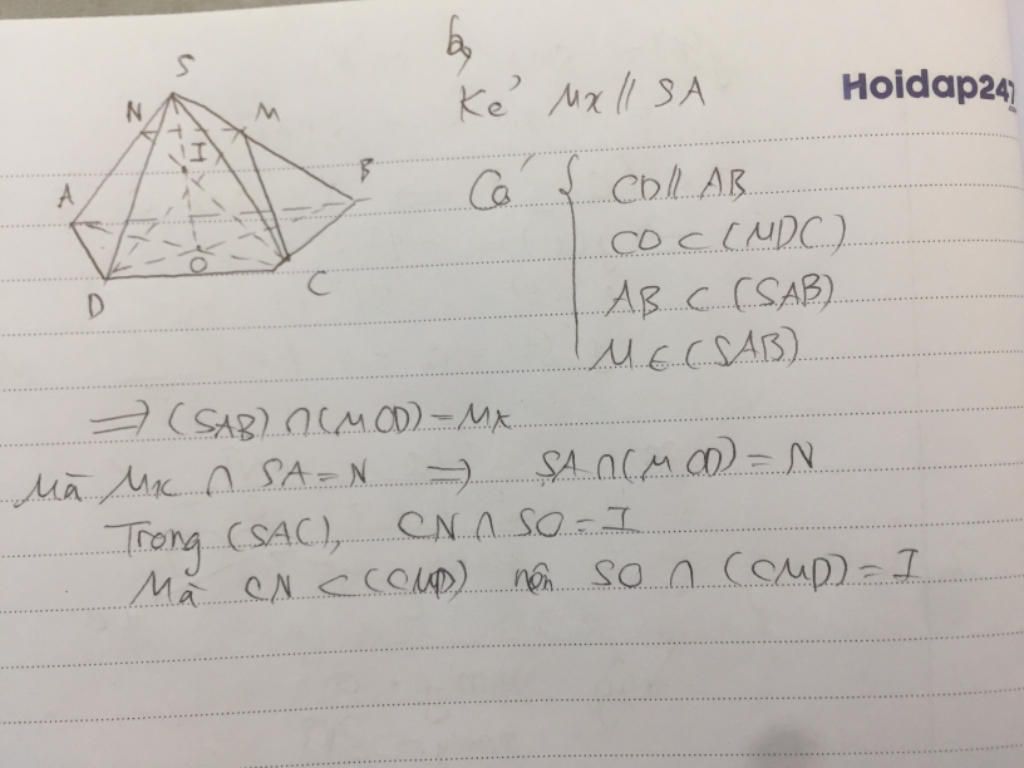 S
N
M
I
B
A
O
D
C
b,
Kẻ Mx // SA
Hoidap247
Có { CD // AB
CD ⊂ (MDC)
AB ⊂ (SAB)
M ∈ (SAB)
=> (SAB) ∩ (MCD) = Mx
Mà Mx ∩ SA = N => SA ∩ (MCD) = N
Trong (SAC), CN ∩ SO = I
Mà CN ⊂ (CMD) nên SO ∩ (CMD) = I